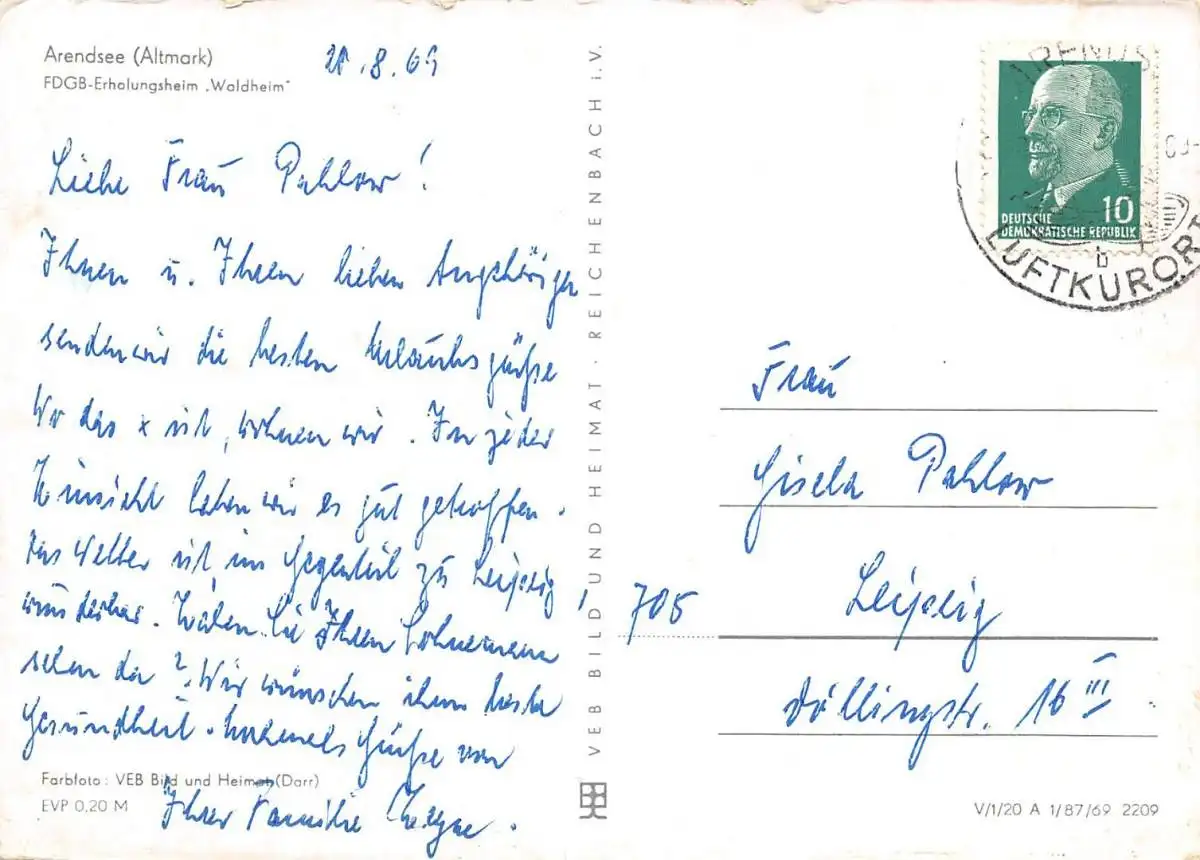 Arendsee (Altmark)
FDGB-Erholungsheim „Waldheim"
.8.69
Liebe Frau Pahlow!
Ihnen u. Ihren lieben Angehörigen
senden wir die besten Urlaubsgrüße
Wo das x ist, wohnen wir. In jeder
Hinsicht haben wir es gut getroffen.
Das Wetter ist im Gegenteil zu Leipzig,
wunderbar. Sie Ihren
schon da? Wir wünschen ihm beste
Gesundheit. Nochmals Grüße von
Ihrer Familie
Farbfoto: VEB Bild und Heimat (Darr)
EVP 0,20 M
VEB BILD UND HEIMAT · REICHENBACH i. V.
DEUTSCHE
DEMOKRATISCHE REPUBLIK
10
b
LUFTKURORT
Frau
Gisela Pahlow
705 Leipzig
Döllingstr. 16 III
V/1/20 A 1/87/69 2209